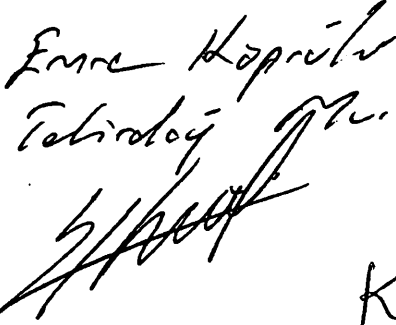 Emre Köprülü
Tekirdağ Mv.
K